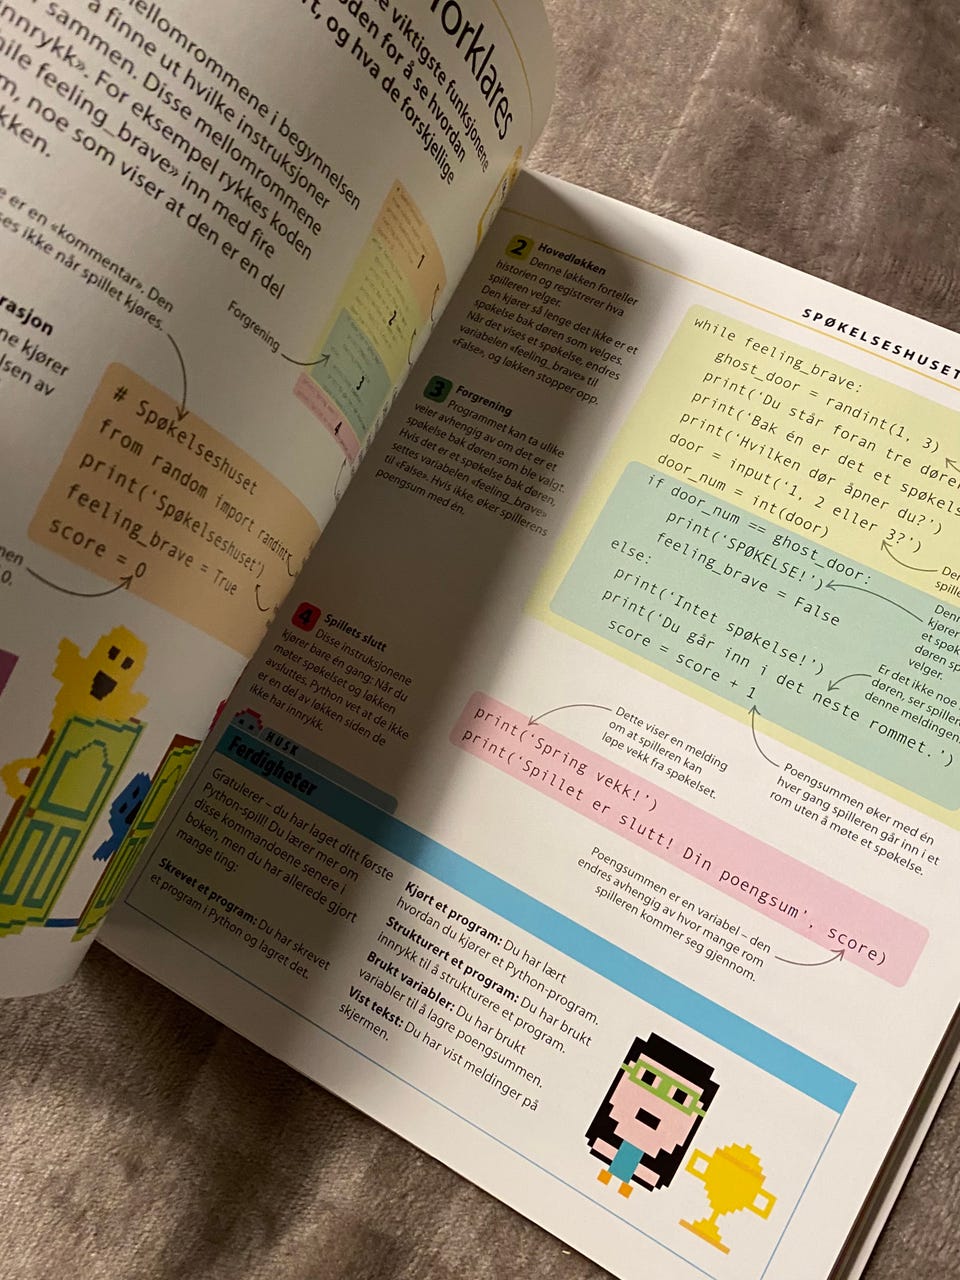 forklares
e viktigste funksjonene
oden for å se hvordan
rt, og hva de forskjellige
mellomrommene i begynnelsen
å finne ut hvilke instruksjoner
r sammen. Disse mellomrommene
innrykk». For eksempel rykkes koden
hile feeling_brave» inn med fire
m, noe som viser at den er en del
kken.
e er en «kommentar». Den
ses ikke når spillet kjøres.
Forgrening
1
2
3
4
rasjon
ne kjører
lsen av
# Spøkelseshuset
from random import randint
print('Spøkelseshuset')
feeling_brave = True
score = 0
nen
0.
SPØKELSESHUSET
2 Hovedløkken
Denne løkken forteller
historien og registrerer hva
spilleren velger.
Den kjører så lenge det ikke er et
spøkelse bak døren som velges.
Når det vises et spøkelse, endres
variabelen «feeling_brave» til
«False», og løkken stopper opp.
3 Forgrening
Programmet kan ta ulike
veier avhengig av om det er et
spøkelse bak døren som ble valgt.
Hvis det er et spøkelse bak døren,
settes variabelen «feeling_brave»
til «False». Hvis ikke, øker spillerens
poengsum med én.
4 Spillets slutt
Disse instruksjonene
kjører bare én gang: Når du
møter spøkelset og løkken
avsluttes. Python vet at de ikke
er en del av løkken siden de
ikke har innrykk.
while feeling_brave:
ghost_door = randint(1, 3)
print('Du står foran tre dører
print('Bak én er det et spøkels
print('Hvilken dør åpner du?')
door = input('1, 2 eller 3?')
door_num = int(door)
if door_num == ghost_door:
print('SPØKELSE!')
feeling_brave = False
else:
print('Intet spøkelse!')
print('Du går inn i det neste rommet.')
score = score + 1
Der
spille
Denn
kjører
et spøk
døren sp
velger.
Er det ikke noe
døren, ser spiller
denne meldingen.
print('Spring vekk!')
print('Spillet er slutt! Din poengsum', score)
Dette viser en melding
om at spilleren kan
løpe vekk fra spøkelset.
Poengsummen øker med én
hver gang spilleren går inn i et
rom uten å møte et spøkelse.
Poengsummen er en variabel – den
endres avhengig av hvor mange rom
spilleren kommer seg gjennom.
HUSK
Ferdigheter
Gratulerer – du har laget ditt første
Python-spill! Du lærer mer om
disse kommandoene senere i
boken, men du har allerede gjort
mange ting:
Skrevet et program: Du har skrevet
et program i Python og lagret det.
Kjørt et program: Du har lært
hvordan du kjører et Python-program.
Strukturert et program: Du har brukt
innrykk til å strukturere et program.
Brukt variabler: Du har brukt
variabler til å lagre poengsummen.
Vist tekst: Du har vist meldinger på
skjermen.